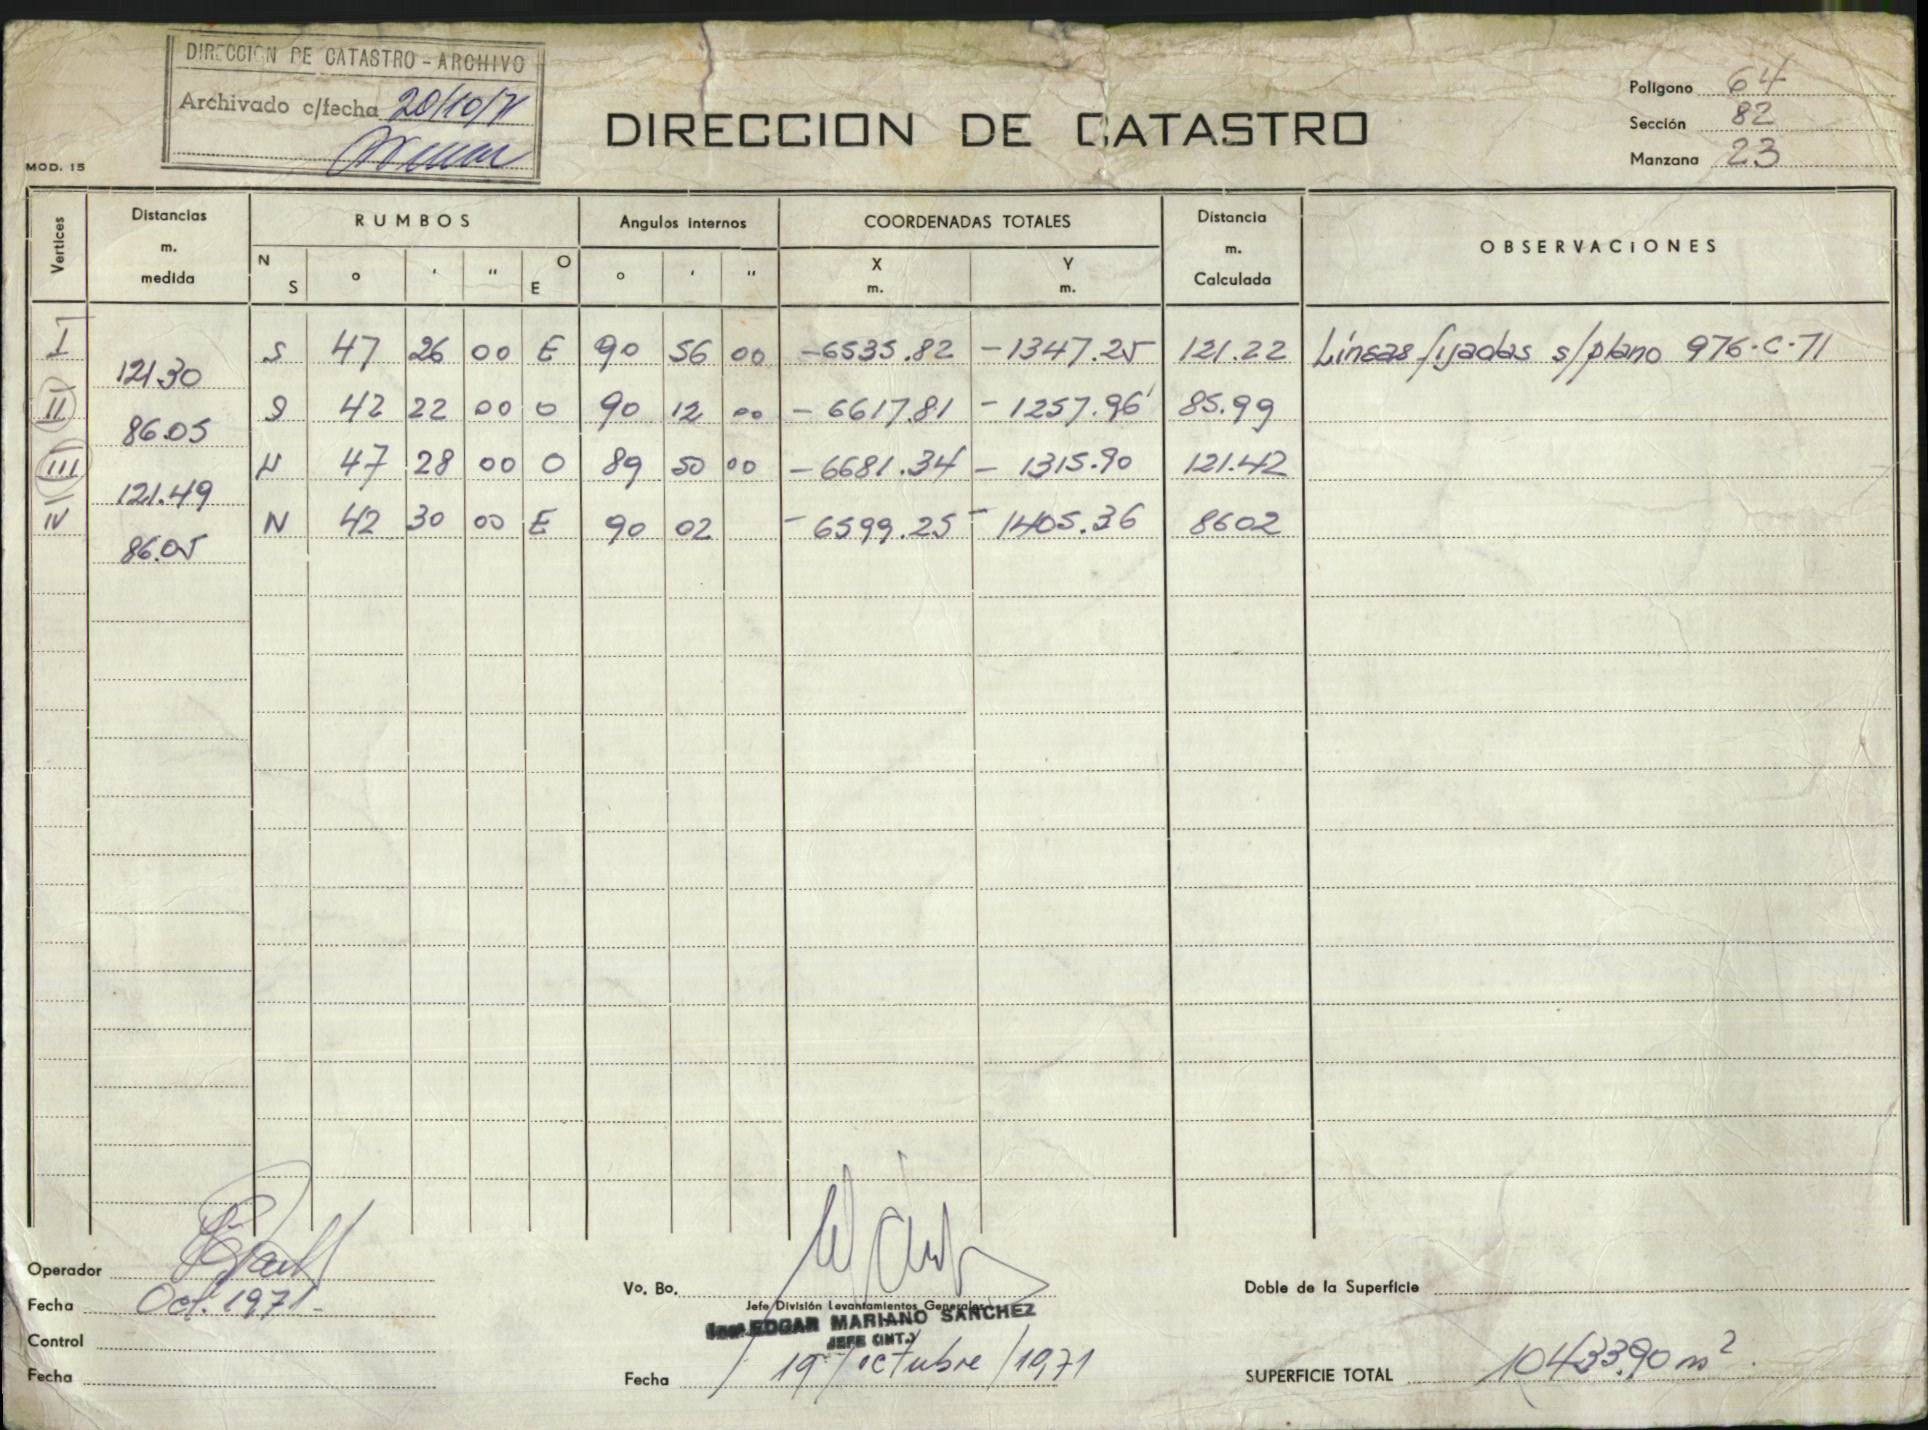 DIRECCION DE CATASTRO - ARCHIVO
Archivado c/fecha 20/10/71
DIRECCION DE CATASTRO
Polígono 64
Sección 82
Manzana 23
MOD. 15
Vertices
Distancias m. medida
RUMBOS
Angulos internos
COORDENADAS TOTALES
Distancia m. Calculada
OBSERVACIONES
N S ° ' " O E ° ' " X m. Y m.
I S 47 26 00 E 90 56 00 -6535.82 -1347.25 121.22 Líneas fijadas s/plano 976-C-71
121.30
II S 42 22 00 O 90 12 00 -6617.81 -1257.96 85.99
86.05
III N 47 28 00 O 89 50 00 -6681.34 -1315.90 121.42
121.49
IV N 42 30 00 E 90 02 -6599.25 -1405.36 8602
86.05
Operador
Fecha Oct. 1971-
Control
Fecha
Vo. Bo.
Jefe División Levantamientos Generales
Ing. EDGAR MARIANO SANCHEZ
JEFE (INT.)
Fecha 19/octubre/1971
Doble de la Superficie
SUPERFICIE TOTAL 10433.90 m².